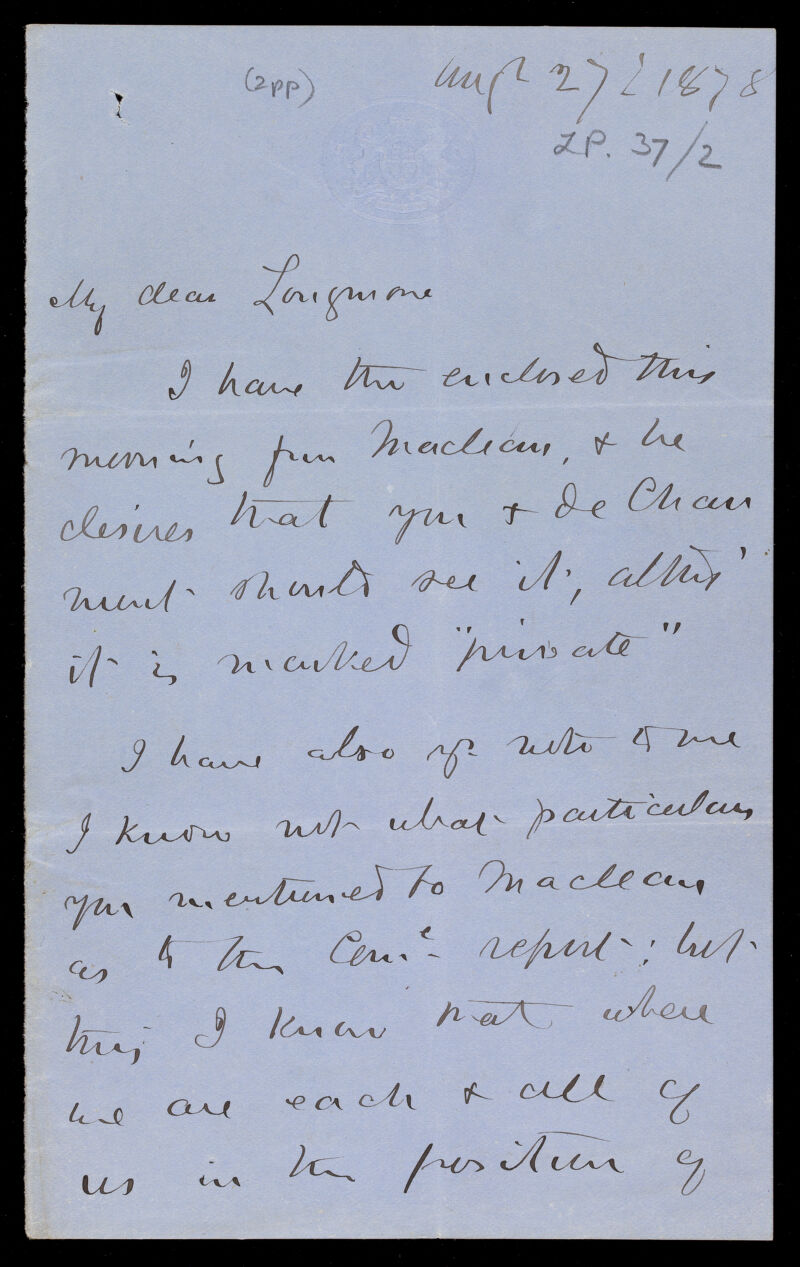 (2pp)
Augt 27th 1878
LP. 37/2
My dear Longmore
I have the enclosed this
morning from Maclean, & he
desires that you & de Chau
mont should see it, altho'
it is marked "private"
I have also yr note to me
I know not what particulars
you mentioned to Maclean
as to the Come report; but
this I know that where
we are each & all of
us in the position of